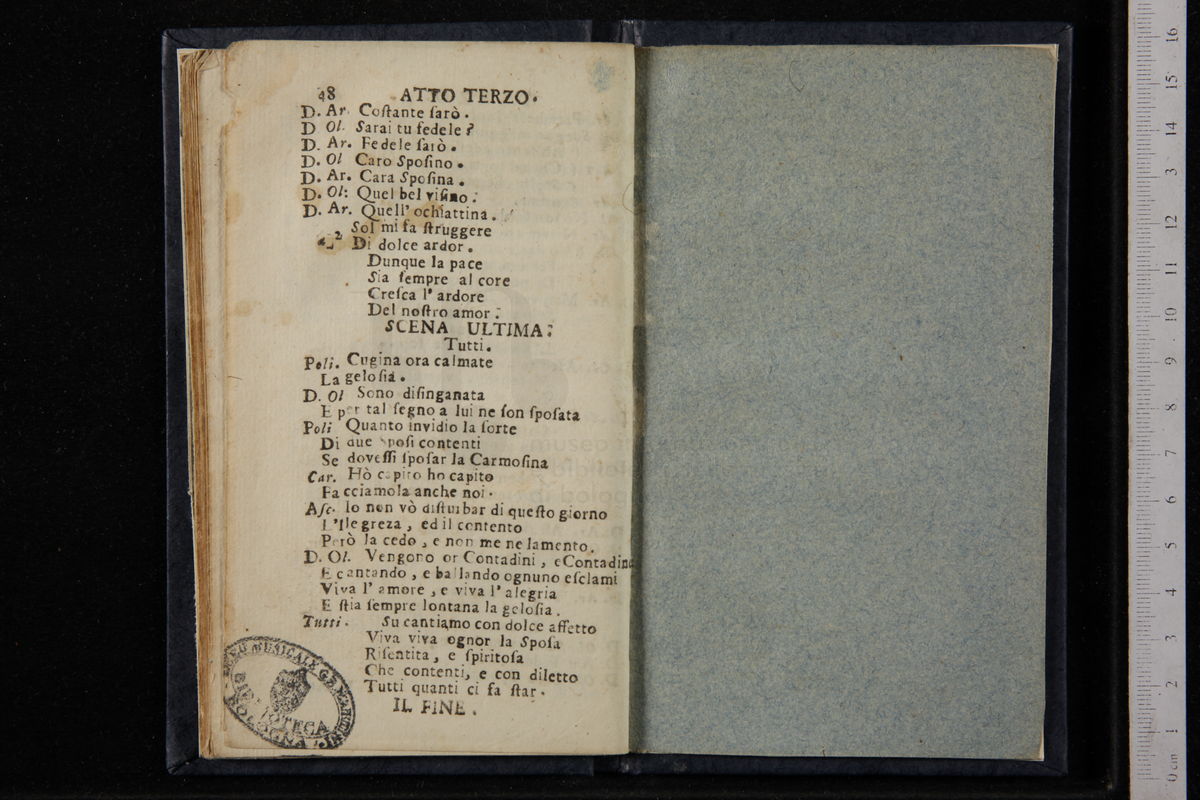 48 ATTO TERZO.
D. Ar. Coſtante ſarò.
D Ol. Sarai tu fedele?
D. Ar. Fedele ſarò.
D. Ol Caro Spoſino.
D. Ar. Cara Spoſina.
D. Ol: Quel bel viſino.
D. Ar. Quell' ochiattina.
Sol mi fa ſtruggere
a 2 Di dolce ardor.
Dunque la pace
Sia ſempre al core
Creſca l' ardore
Del noſtro amor.
SCENA ULTIMA.
Tutti.
Poli. Cugina ora calmate
La geloſia.
D. Ol Sono diſinganata
E per tal ſegno a lui ne ſon ſpoſata
Poli Quanto invidio la ſorte
Di due Spoſi contenti
Se doveſſi ſpoſar la Carmoſina
Car. Hò capito ho capito
Facciamola anche noi.
Aſc. Io non vò diſturbar di queſto giorno
L'llegreza, ed il contento
Però la cedo, e non me ne lamento.
D. Ol. Vengono or Contadini, e Contadine
E cantando, e ballando ognuno eſclami
Viva l' amore, e viva l' alegria
E ſtia ſempre lontana la geloſia.
Tutti. Su cantiamo con dolce affetto
Viva viva ognor la Spoſa
Riſentita, e ſpiritoſa
Che contenti, e con diletto
Tutti quanti ci fa ſtar.
IL FINE.
MUSICALE
BIBLIOTECA
BOLOGNA
museo
0 cm 1 2 3 4 5 6 7 8 9 10 11 12 13 14 15 16